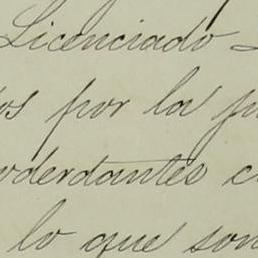 Licenciado
os por la p
oderdantes c
lo que son